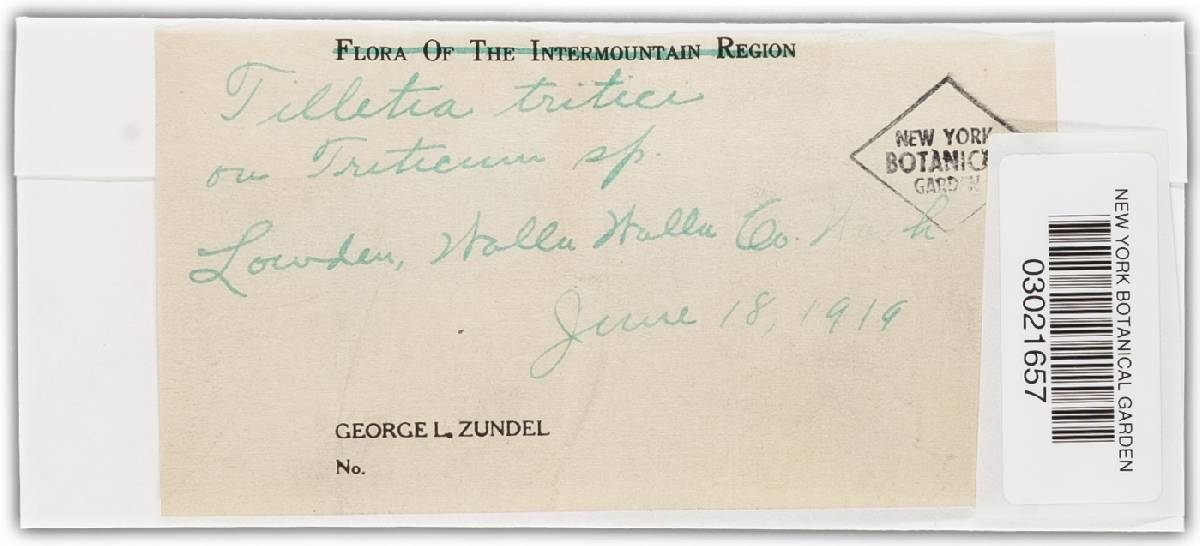 FLORA OF THE INTERMOUNTAIN REGION
Tilletia tritici
on Triticum sp.
Lowden, Walla Walla Co. Wash
June 18, 1919
GEORGE L. ZUNDEL
No.
NEW YORK
BOTANICA
GARDEN
NEW YORK BOTANICAL GARDEN
03021657